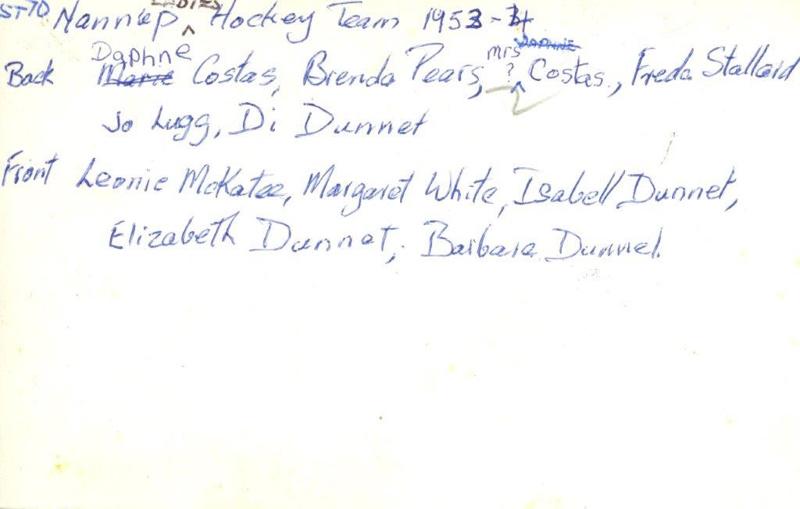 ST70 Nannup LADIES Hockey Team 1953-4
Back Daphne Costas, Brenda Pears, Mrs ? Costas, Freda Stallard
Jo Lugg, Di Dunnet
Front Leonie McKatee, Margaret White, Isabell Dunnet,
Elizabeth Dunnet, Barbara Dunnet.